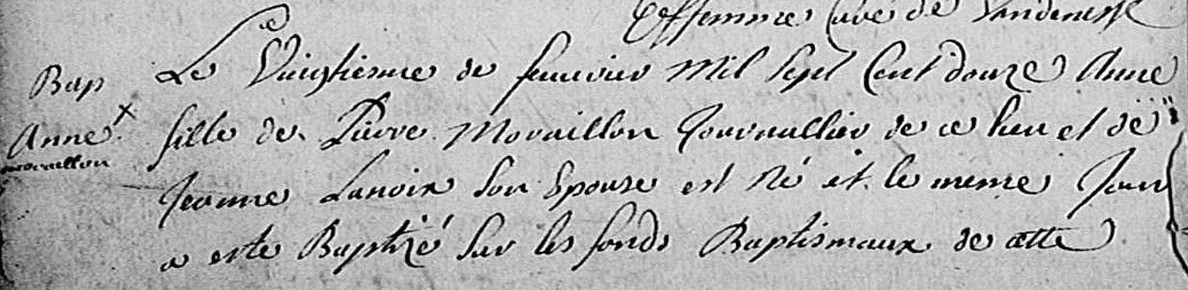 Curé de Vandenesse
Bap Le Vingtiesme de feuvrier Mil Sept Cent douze Anne
Anne fille de Pierre Moraillon Journallier de ce lieu et de
moraillon
Jeanne Lanoix son Epouse est Né et le meme Jour
a este Baptizé sur les fonds Baptismaux de cette